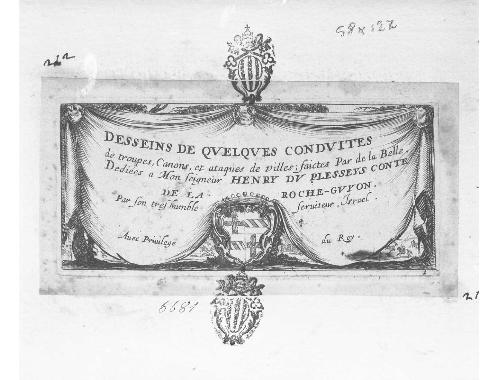 58 x 122
212
DESSEINS DE QVELQVES CONDVITES
de troupes, Canons, et ataques de villes, faictes Par de la Belle.
Dediées a Mon seigneur HENRY DV PLESSEYS CONTE
DE LA ROCHE-GVYON.
Par son tres humble seruiteur, Israel.
Auec Priuilege du Roy.
1